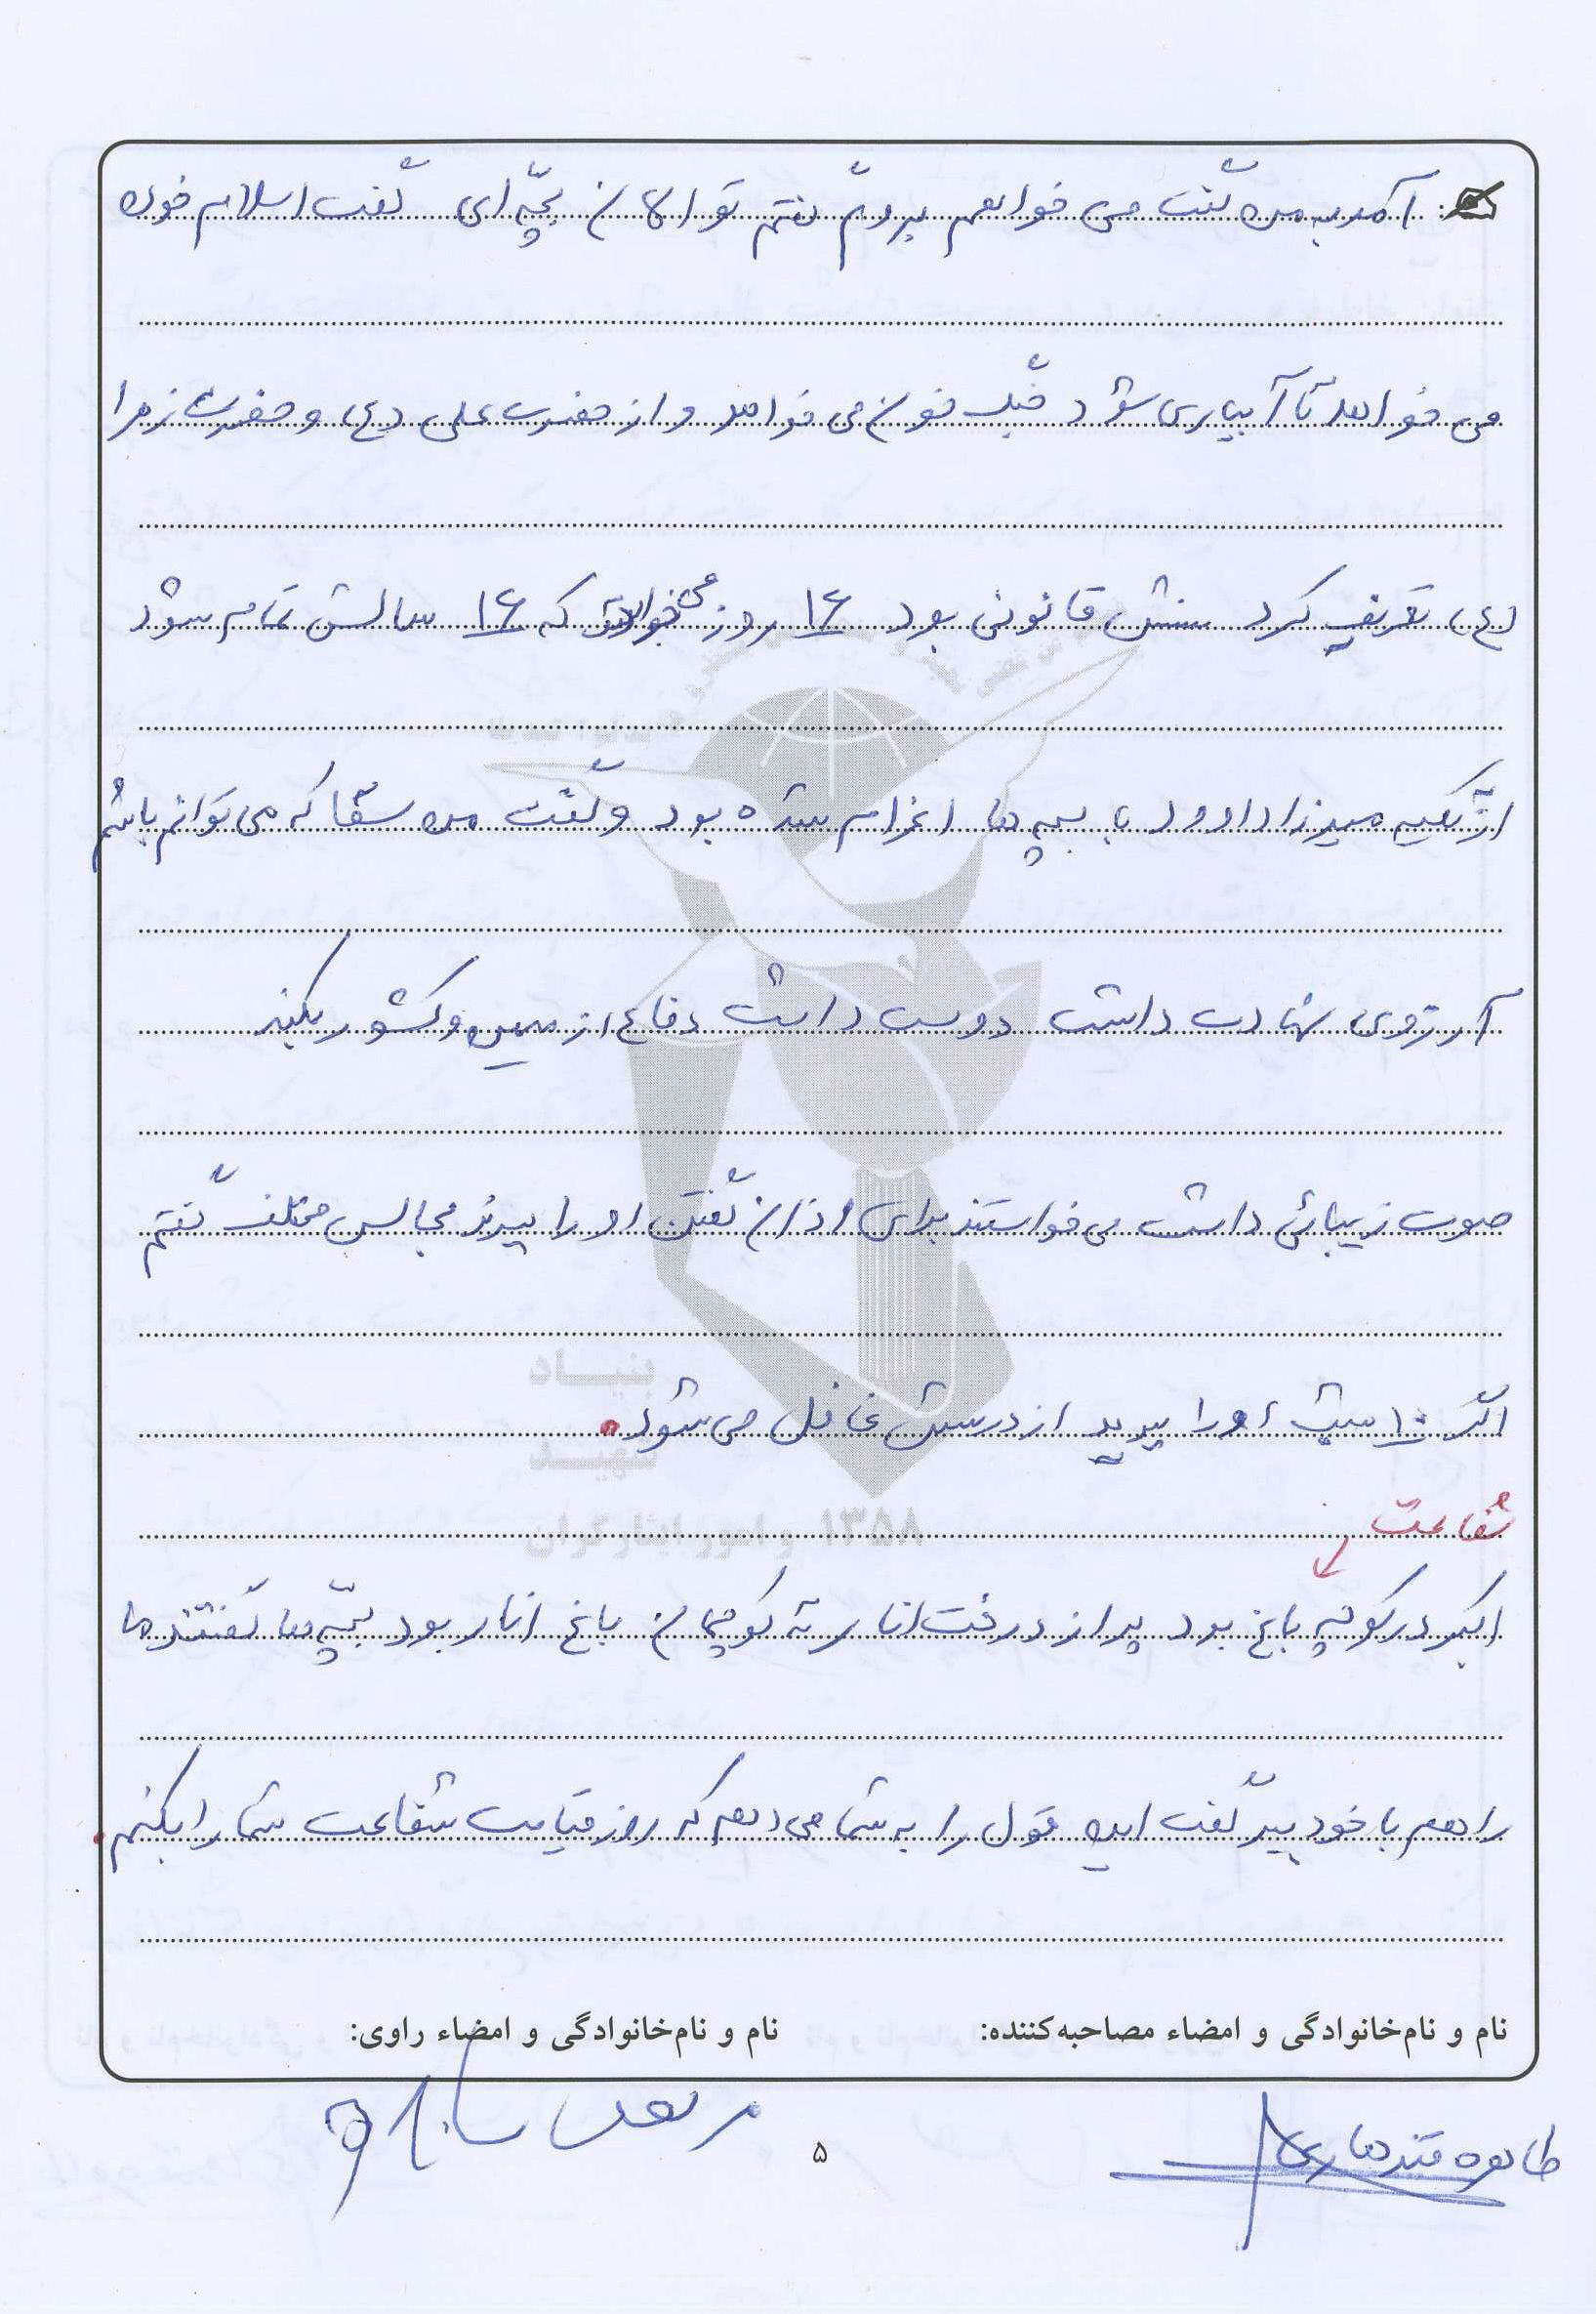 آمد به من گفت می خواهم بروم گفتم تو الان بچّه ای گفت اسلام خون
می خواهد تا آبیاری شود جنگ خون می خواهد و از حضرت علی (ع) و حضرت زهرا
(ع) تعریف کرد سنش قانونی بود ۱۶ روز می خواست که ۱۶ سالش تمام شود
از تکیه میرزا داود با بچه ها اعزام شده بود و گفت من سقا که می توانم باشم
آرزوی شهادت داشت دوست داشت دفاع از میهن و کشور بکند
صوت زیبائی داشت می خواستند برای اذان گفتن او را ببرند مجالس مختلف گفتم
اگر ۱۰ شب او را ببرید از درسش غافل می شود.
شفاعت
اکبر در کوچه باغ بود پر از درخت انار ته کوچمان باغ انار بود بچّه ها گفتند ما
را هم با خود ببر گفت این قول را به شما می دهم که روز قیامت شفاعت شما را بکنم.
نام و نام‌خانوادگی و امضاء مصاحبه‌کننده:
نام و نام‌خانوادگی و امضاء راوی:
طاهره قندهاری
۵
بنیاد
شهید
و امور ایثارگران ۱۳۵۸